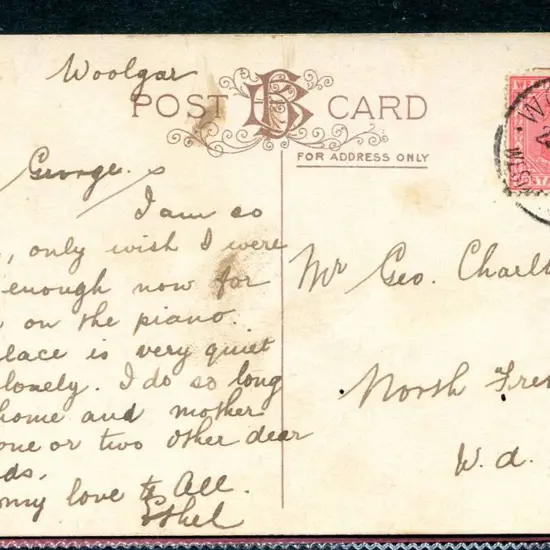 Woolgar
POST CARD
FOR ADDRESS ONLY
George.
I am so
, only wish I were
enough now for
on the piano.
lace is very quiet
lonely. I do so long
home and mother
one or two other dear
ds.
my love to All.
Ethel
Mr Geo. Charlt
North Fre
W.A.
WO
WEST